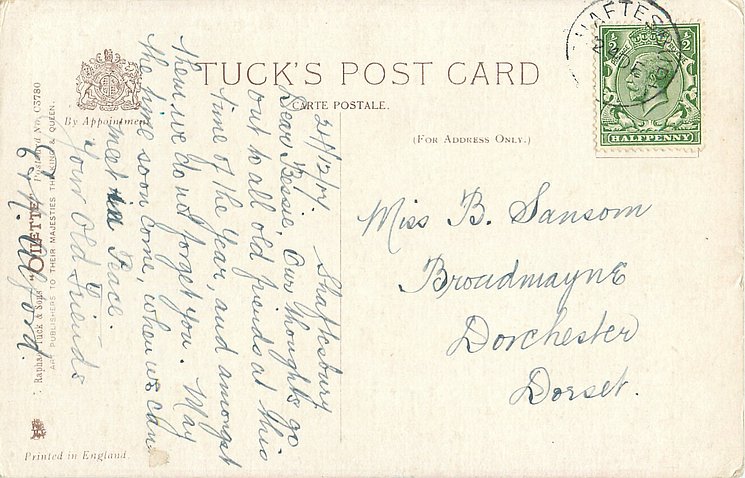 TUCK'S POST CARD
CARTE POSTALE.
(FOR ADDRESS ONLY.)
By Appointment
Raphael Tuck & Sons "OILETTE" Postcard No. C3780
ART PUBLISHERS TO THEIR MAJESTIES THE KING & QUEEN.
Printed in England.
HALFPENNY
Shaftesbury
21/12/17.
Dear Bessie, Our thoughts go
out to all old friends at this
time of the Year, and amongst
them we do not forget you. May
the time soon come, when we can
meet in Peace.
Your Old Friends
Miss B. Sansom
Broadmayne
Dorchester
Dorset.